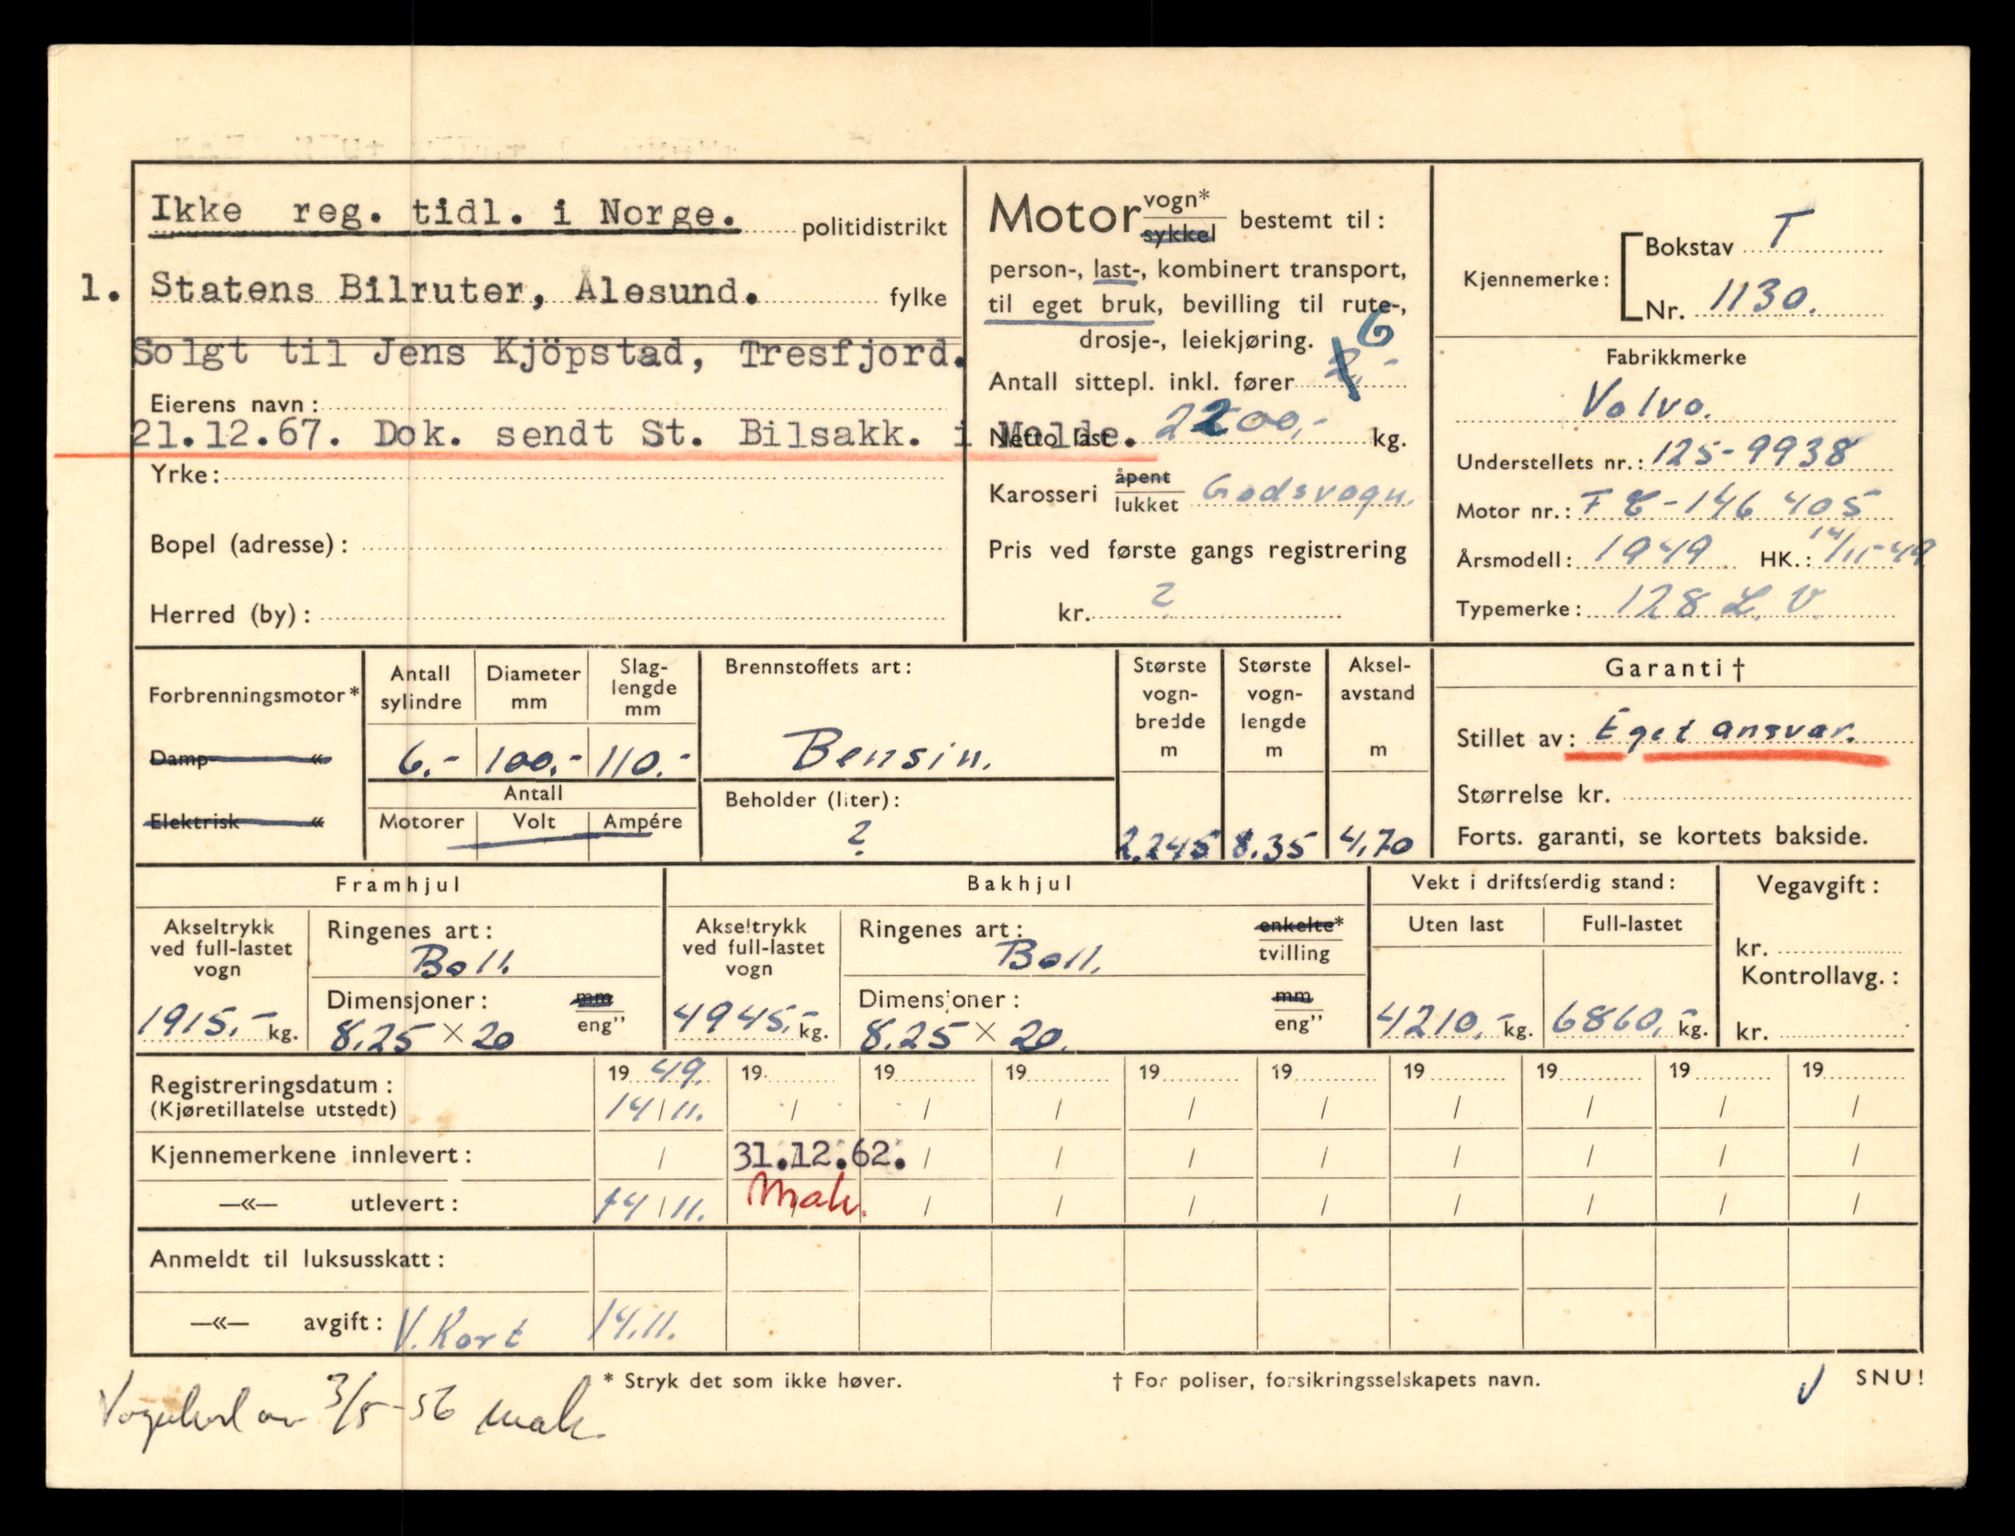 Ikke reg. tidl. i Norge. politidistrikt
1. Statens Bilruter, Ålesund. fylke
Solgt til Jens Kjöpstad, Tresfjord.
Eierens navn:
21.12.67. Dok. sendt St. Bilsakk. i Molde.
Yrke:
Bopel (adresse):
Herred (by):
Motor vogn* sykkel bestemt til:
person-, last-, kombinert transport,
til eget bruk, bevilling til rute-,
drosje-, leiekjøring. 6
Antall sittepl. inkl. fører 2,-
Netto last 2200,- kg.
Karosseri åpent lukket Godsvogn.
Pris ved første gangs registrering
kr. ?
Kjennemerke: Bokstav T
Nr. 1130.
Fabrikkmerke
Volvo.
Understellets nr.: 125-9938
Motor nr.: F E - 146 405
Årsmodell: 1949 HK.: 14/11-49
Typemerke: 128 L. V.
Forbrenningsmotor*
Damp- «
Elektrisk «
Antall sylindre
Diameter mm
Slag-lengde mm
6.- 100.- 110.-
Antall
Motorer Volt Ampére
Brennstoffets art:
Bensin.
Beholder (liter):
?
Største vogn-bredde m
2.245
Største vogn-lengde m
8.35
Aksel-avstand m
4,70
Garanti †
Stillet av: Eget ansvar.
Størrelse kr.
Forts. garanti, se kortets bakside.
Framhjul
Akseltrykk ved full-lastet vogn
1915,- kg.
Ringenes art:
Boll.
Dimensjoner: mm eng”
8.25 × 20
Bakhjul
Akseltrykk ved full-lastet vogn
4945,- kg.
Ringenes art: enkelte* tvilling
Boll.
Dimensjoner: mm eng”
8.25 × 20.
Vekt i driftsferdig stand:
Uten last Full-lastet
4210,- kg. 6860,- kg.
Vegavgift:
kr.
Kontrollavg.:
kr.
Registreringsdatum: 19 49. 19 19 19 19 19 19 19 19 19
(Kjøretillatelse utstedt) 14/11. / / / / / / / / /
Kjennemerkene innlevert: / 31.12.62. / / / / / / / /
—«— utlevert: 14/11. Mak. / / / / / / / /
Anmeldt til luksusskatt:
—«— avgift: V. Kort 14.11.
* Stryk det som ikke høver. † For poliser, forsikringsselskapets navn. SNU!
3/5-56 Mak.